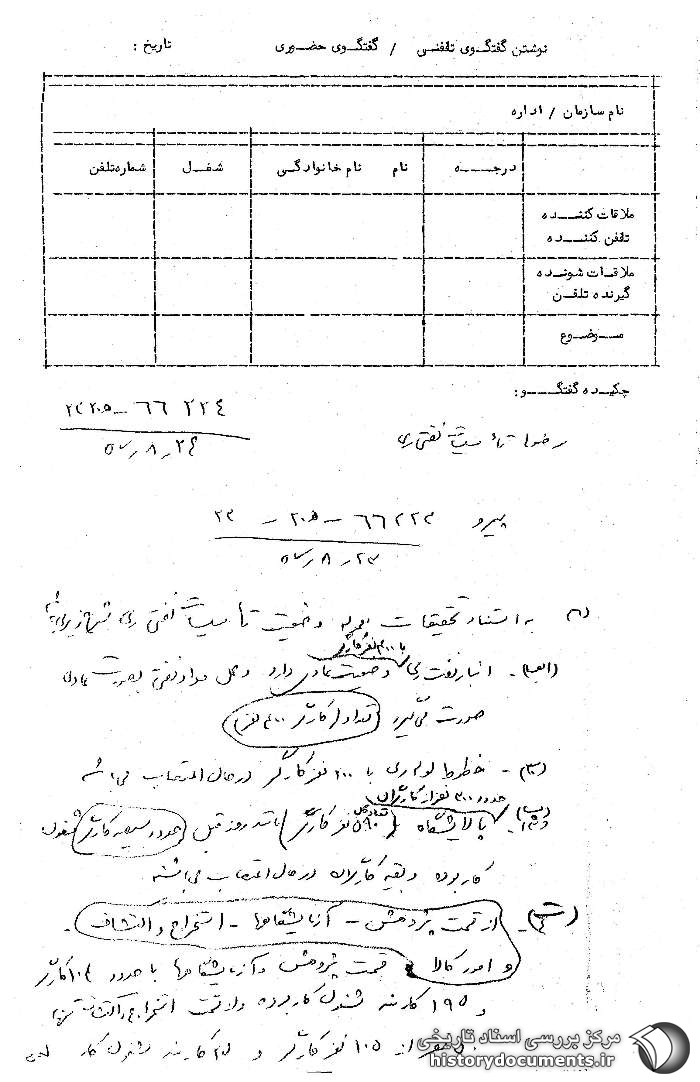 نوشتن گفتگوی تلفنی / گفتگوی حضوری تاریخ :
نام سازمان / اداره
درجه نام نام خانوادگی شغل شماره تلفن
ملاقات کننده
تلفن کننده
ملاقات شونده
گیرنده تلفن
موضوع
چکیده گفتگو :
۶۶ ۲۲۴
۲۴ر۸ر۵۷
تأسیسات نفتی ری
پیرو ۶۶۲۲۳ - ۲۰۵ - ۲۳
۲۳ر۸ر۵۷
به استناد تحقیقات وضعیت تأسیسات نفتی ری بشرح زیر
با ۳۰۰ نفر کارگر
الف - انبار نفت ری وضعیت عادی دارد و حمل مواد نفتی بصورت عادی
صورت می‌گیرد (تعداد کارگر ۳۰۰ نفر)
خطوط لوله ری با ۲۰۰ نفر کارگر در حال اعتصاب می‌باشد
حدود ۳۰۰ نفر از کارگران
پالایشگاه (تعداد کل ۵۹۰ نفر کارگر) مانند روز قبل حدود سیصد کارگر مشغول
کار بوده و بقیه کارگران در حال اعتصاب می‌باشند
از قسمت پژوهش - آزمایشگاهها - استخراج و اکتشاف -
و امور کالا قسمت پژوهش و آزمایشگاهها با حدود ۱۰۴ کارگر
و ۱۹۵ کارمند مشغول کار بوده ولی قسمت استخراج و اکتشاف تنها
از ۱۰۵ نفر کارگر و کارمند مشغول کار
مرکز بررسی اسناد تاریخی
historydocuments.ir